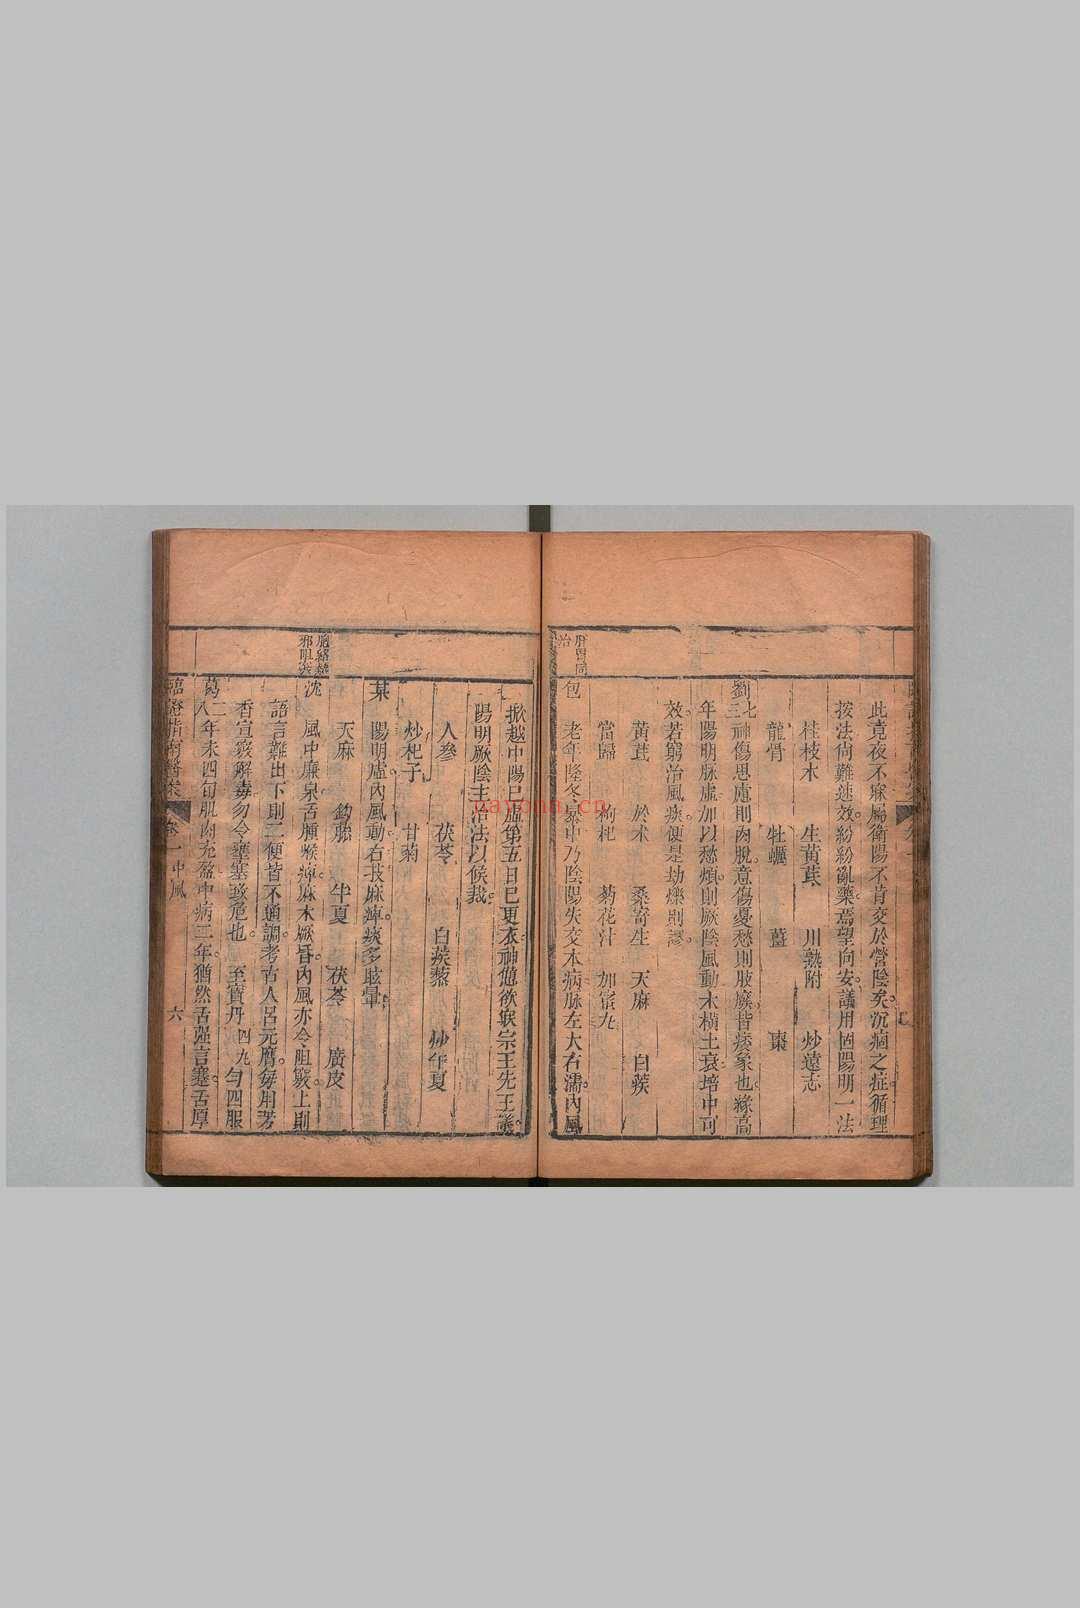 此竟夜不寐屬衛陽不肯交於營陰矣沉痼之症循理
按法尚難速效紛紛亂藥焉望向安議用固陽明一法
桂枝木 生黃芪 川熟附 炒遠志
龍骨 牡蠣 薑 棗
劉七三神傷思慮則肉脫意傷憂愁則肢廢皆痿象也緣高
年陽明脈虛加以愁煩則厥陰風動木橫土衰培中可
效若窮治風痰便是劫爍則謬
黃芪 於术 桑寄生 天麻 白蒺
當歸 枸杞 菊花汁 加蜜丸
肝腎同治
包
老年隆冬暴中乃陰陽失交本病脉左大右濡內風
掀越中陽已虛第五日已更衣神憊欲寐宗王先生議
陽明厥陰主治法以候裁
人參 茯苓 白蒺藜 炒半夏
炒杞子 甘菊
某 陽明虛內風動右肢麻痺痰多眩暈
天麻 鈎藤 半夏 茯苓 廣皮
胞絡熱邪阻竅
沈
風中廉泉舌腫喉痺麻木厥昏內風亦令阻竅上則
語言難出下則二便皆不通調考古人呂元膺每用芳
香宣竅解毒勿令壅塞致危也 至寶丹 四丸 勻四服
葛二八年未四旬肌肉充盈中病二年猶然舌強言蹇舌厚
臨證指南醫案 卷一 中風 六
nayona.cn